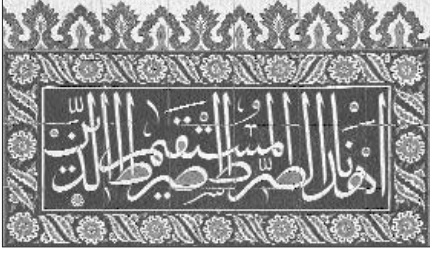 اهدنا الصراط المستقيم صراط الذين